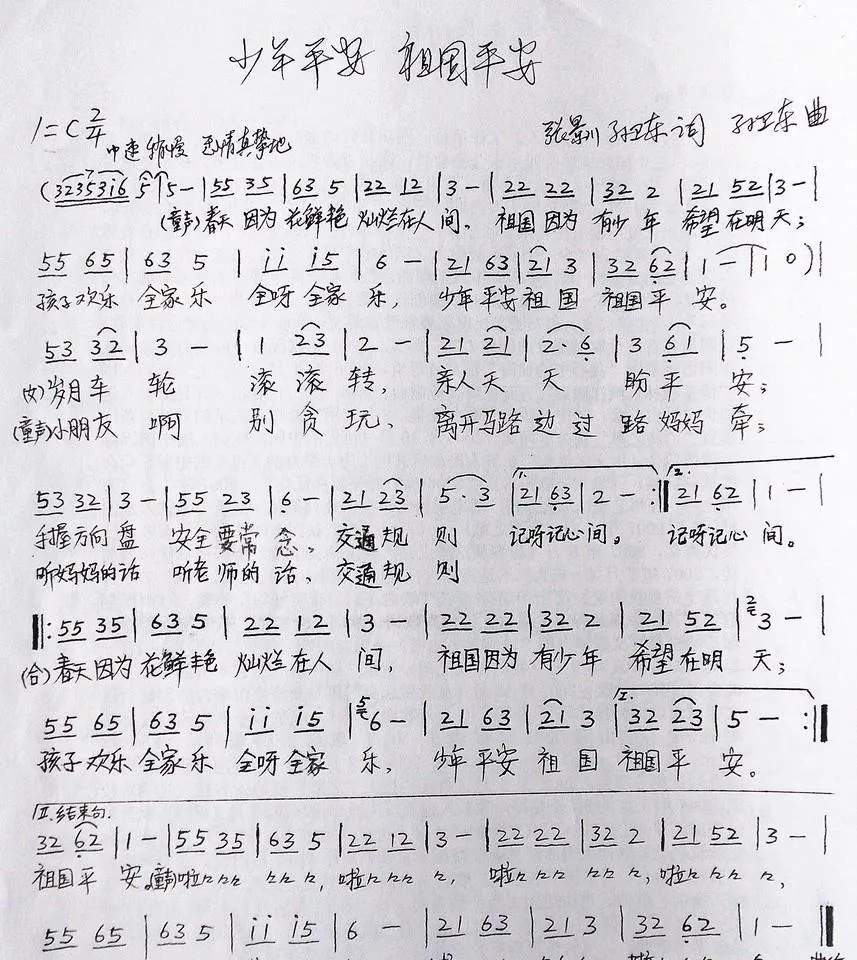 少年平安 祖国平安
1=C 2/4
中速稍慢 真挚地 词 曲
(3235316 5 | 5 - | 55 35 | 63 5 | 22 12 | 3 - | 22 22 | 32 2 | 21 52 | 3 - |
(童声)春天 因为 花鲜艳 灿烂在人间, 祖国因为 有少年 希望在明天;
55 65 | 63 5 | i i i5 | 6 - | 21 63 | 21 3 | 32 62 | 1 - | 1 0) |
孩子欢乐 全家乐 全呀全家 乐, 少年平安祖国 祖国平 安。
53 32 | 3 - | 1 23 | 2 - | 21 21 | 2·6 | 3 61 | 5 - |
(女)岁月车 轮 滚滚转, 亲人天 天 盼平 安;
(童声)小朋友 啊 别贪玩, 离开马路边过路妈妈牵;
53 32 | 3 - | 55 23 | 6 - | 21 23 | 5·3 | 1. 21 63 | 2 - :‖ 2. 21 62 | 1 - |
手握方向盘 安全要常念, 交通规 则 记呀记心间。 记呀记心间。
听妈妈的话 听老师的话, 交通规 则
‖: 55 35 | 63 5 | 22 12 | 3 - | 22 22 | 32 2 | 21 52 | 2 3 - |
(合)春天因为 花鲜艳 灿烂在人 间, 祖国因为 有少年 希望在明 天;
55 65 | 63 5 | i i i5 | 5 6 - | 21 63 | 21 3 | I. 32 23 | 5 - :‖
孩子欢乐 全家乐 全呀全家 乐, 少年平安 祖国 祖国平 安。
II.结束句.
32 62 | 1 - | 55 35 | 63 5 | 22 12 | 3 - | 22 22 | 32 2 | 21 52 | 3 - |
祖国平 安。(童声)啦
55 65 | 63 5 | i i i5 | 6 - | 21 63 | 21 3 | 32 62 | 1 - ‖